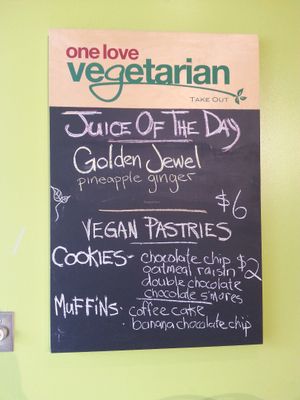 one love
vegetarian
TAKE OUT
JUICE OF THE DAY
Golden Jewel
pineapple ginger
$6
VEGAN PASTRIES
COOKIES - chocolate chip $2
oatmeal raisin
double chocolate
chocolate s'mores
MUFFINS · coffee cake
· banana chocolate chip